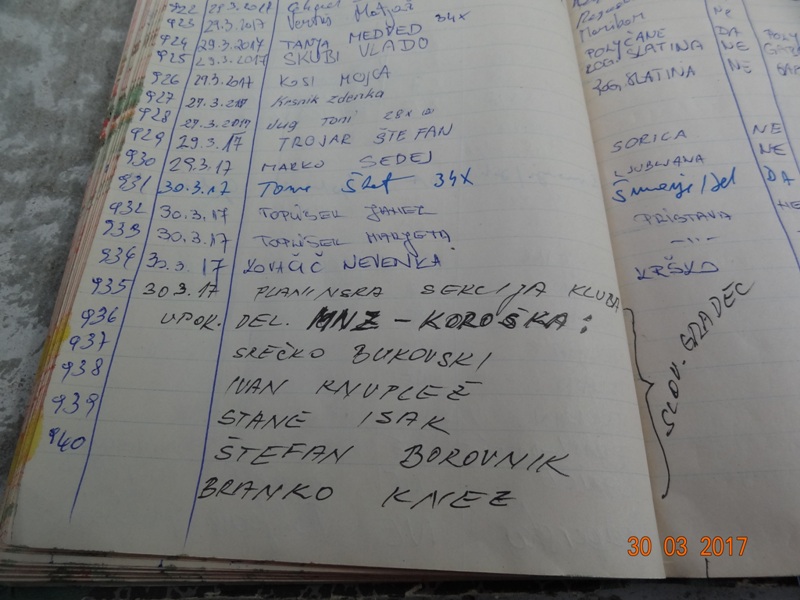 922 29.3.2017
923 29.3.2017 Matjaž Ne
924 29.3.2017 TANJA MEDVED 34X POLJČANE DA
925 29.3.2017 SKUBI VLADO ROG. SLATINA NE
926 29.3.2017 KOSI MOJCA ROG. SLATINA NE
927 29.3.2017 Krsnik Zdenka
928 29.3.2017 Jug Toni 28x
929 29.3.17 TROJAR ŠTEFAN SORICA NE
930 29.3.17 MARKO SEDEJ LJUBLJANA NE
931 30.3.17 34X DA
932 30.3.17 TOPLIŠEK JANEZ PRISTAVA NE
933 30.3.17 TOPLIŠEK MARJETA -"-
934 30.3.17 KOVAČIČ NEVENKA KRŠKO
935 30.3.17 PLANINSKA SEKCIJA KLUBA
936 UPOK. DEL. MNZ - KOROŠKA: SLOV. GRADEC
937 SREČKO BUKOVSKI
938 IVAN KNUPLEŽ
939 STANE ISAK
940 ŠTEFAN BOROVNIK
BRANKO KNEZ
30 03 2017